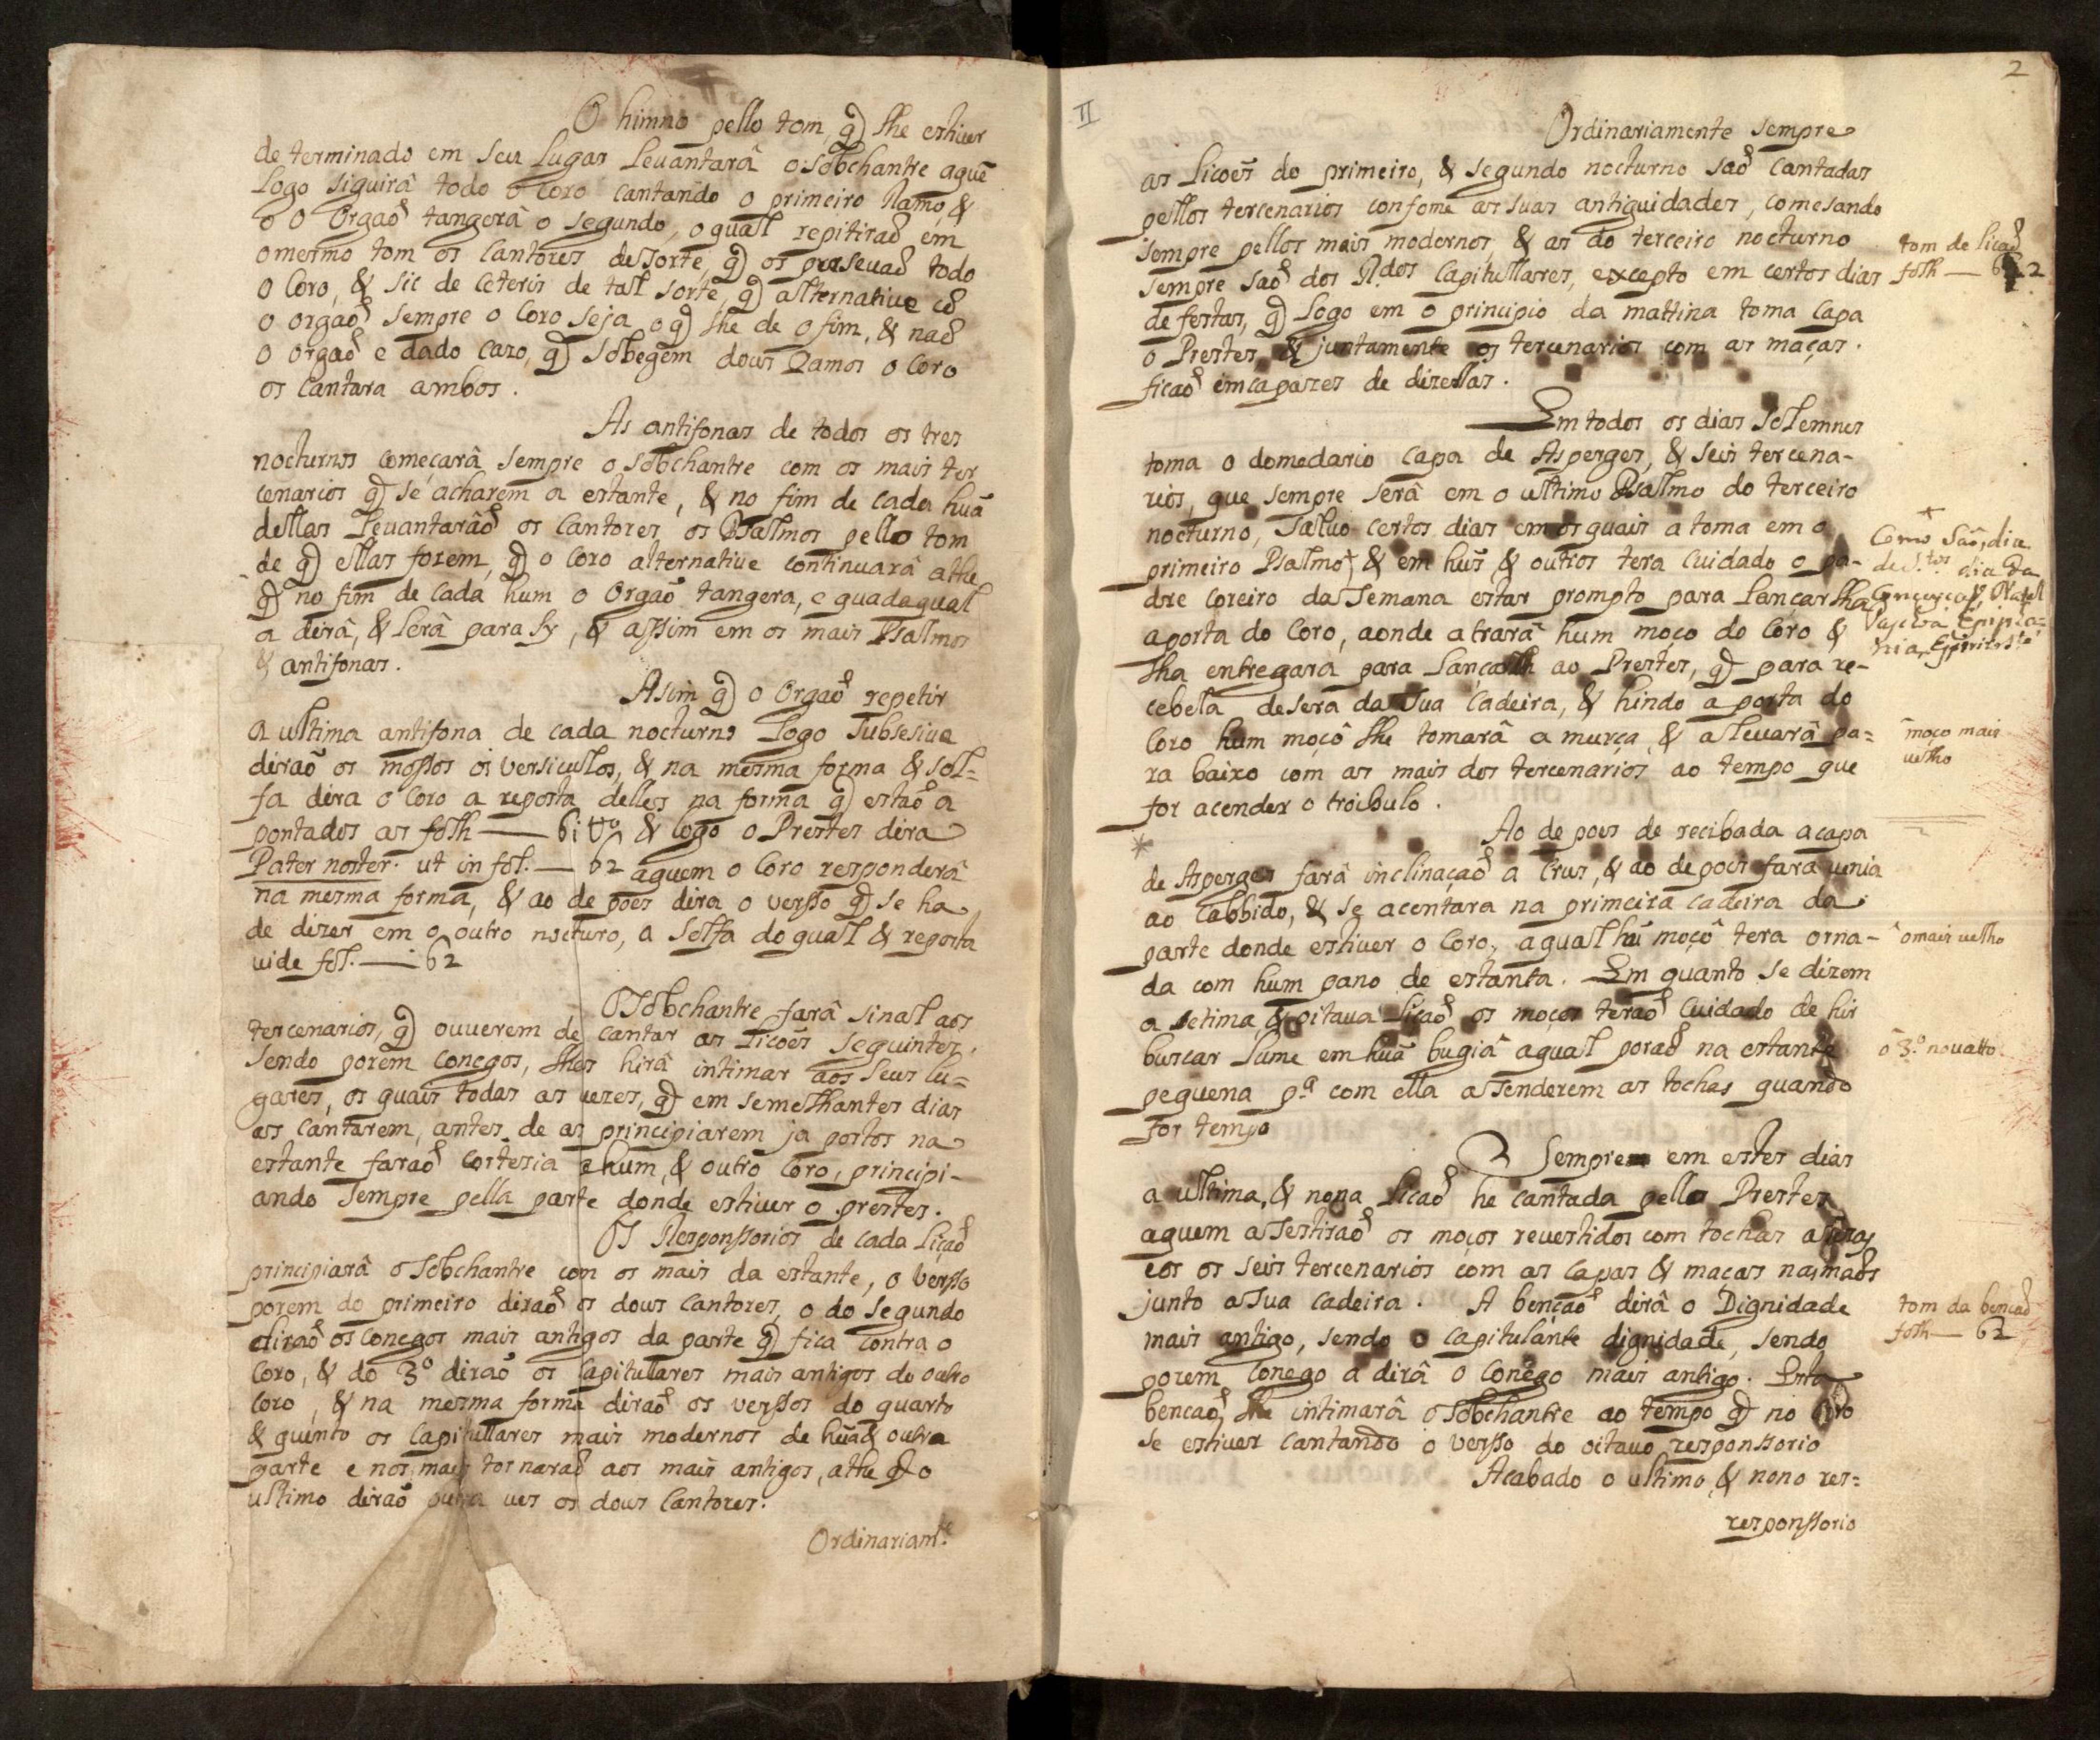 O himno pello tom q̃ lhe estiuer
determinado em seu lugar leuantarâ o sobchantre aquẽ
logo siguirâ todo o coro cantando o primeiro Ramo, &
o O orgaõ tangerâ o segundo, o qual repitiraõ em
o mesmo tom os cantores desorte, q̃ os proseuaõ todo
o Coro, & sic de ceteris de tal sorte, q̃ alternatiue cõ
o orgaõ sempre o Coro seja o q̃ lhe de o fim, & naõ
o orgaõ e dado cazo, q̃ sobegem dous Ramos o Coro
os cantara ambos.
As antifonas de todos os tres
nocturnos começarâ sempre o sobchantre com os mais ter
cenarios q̃ se acharem a estante, & no fim de cada huã
dellas leuantarâõ os Cantores os Psalmos pello tom
de q̃ ellas forem, q̃ o coro alternatiue continuarâ athe
q̃ no fim de cada hum o Orgaõ tangera, e quadaqual
a dirâ, & lerâ para sy, & assim em os mais Psalmos
& antifonas.
Asim q̃ o Orgaõ repetir
a ultima antifona de cada nocturno logo subsesiue
diraõ os mossos os versiculos, & na mesma forma & sol=
fa dira o Coro a reposta delles na forma q̃ estaõ a
pontados as folh — 61 vº & logo o Prestes dira
Pater noster. ut in fol. — 62 aquem o Coro responderâ
na mesma forma, & ao de poes dira o verso q̃ se ha
de dizer em o outro nocturo, a solfa do qual & reposta
uide fol. — 62
O Sobchantre farâ sinal aos
tercenarios, q̃ ouuerem de cantar as Licoẽs seguintes.
sendo porem conegos, lhes hirâ intimar aos seus lu=
gares, os quais todas as uezes, q̃ em semelhantes dias
as cantarem, antes de as principiarem ja postos na
estante faraõ cortezia a hum, & outro Coro, principi-
ando sempre pella parte donde estiuer o prestes.
Os Responssorios de cada liçaõ
principiarâ o Sobchantre com os mais da estante, o verso
porem do primeiro diraõ os dous Cantores, o do segundo
diraõ os conegos mais antigos da parte q̃ fica contra o
coro, & do 3º diraõ os Capitulares mais antigos do outro
coro, & na mesma forma diraõ os versos do quarto
& quinto os Capitullares mais modernos de huã & outra
parte e nos mais tornaraõ aos mais antigos, athe q̃ o
ultimo diraõ outra ues os dous Cantores.
Ordinariamte.
2
II
Ordinariamente sempre
as licoẽs do primeiro, & segundo nocturno saõ cantadas
pellos tercenarios confome as suas antiguidades, comesando
sempre pellos mais modernos, & as do terceiro nocturno
sempre saõ dos Rdos Capitullares, excepto em certos dias
de festas, q̃ logo em o principio da mattina toma capa
o Prestes, & juntamente os tercenarios com as maças.
ficaõ imcapazes de dizellas.
tom de licaõ
folh — 62
Em todos os dias solemnes
toma o domedario capa de Asperges, & seis tercena-
rios, que sempre serâ em o ultimo Psalmo do terceiro
nocturno, saluo certos dias em os quais a toma em o
primeiro Psalmo, & em hũs & outros tera cuidado o pa-
dre coreiro da semana estar prompto para lançar lha
aporta do Coro, aonde a trarâ hum moço do Coro &
lha entregara para lançarlh ao Prestes, q̃ para re-
cebela desera da sua Cadeira, & hindo a porta do
Coro hum moçô lhe tomarâ a murça, & a leuarâ pa=
ra baixo com as mais dos tercenarios ao tempo que
for acender o troibulo.
Como Saõ, dia
de S.tos dia da
Conceiçaõ, Natal
Pascoa Epipha=
nia, Espirito Sto
moço mais
uelho
Ao de poes de recibada a capa
de Asperges farâ inclinaçaõ a Crus, & ao de poes fara uenia
ao Cabbido, & se acentara na primeira cadeira da
parte donde estiuer o Coro, a qual hũ moçô tera orna-
da com hum pano de estanta. Em quanto se dizem
a setima, & oitaua liçaõ os moços teraõ cuidado de hir
buscar lume em huã bugiâ aqual poraõ na estante
pequena pª com ella asenderem as tochas quando
for tempo
o mais uelho
o 3º nouatto.
Sempre em estes dias
a ultima, & nona licaõ he cantada pello Prestes
aquem asestiraõ os moços reuestidos com tochas assezas
eos os seis tercenarios com as capas & macas nas maõs
junto a sua cadeira. A bençaõ dirâ o Dignidade
mais antigo, sendo o capitulante dignidade, sendo
porem Conego a dirâ o Conego mais antigo. Esta
bencaõ, lhe intimarâ o Sobchantre ao tempo q̃ no Coro
se estiuer cantando o verso do oitauo responssorio
tom da bencaõ
folh — 62
Acabado o ultimo, & nono res=
responssorio